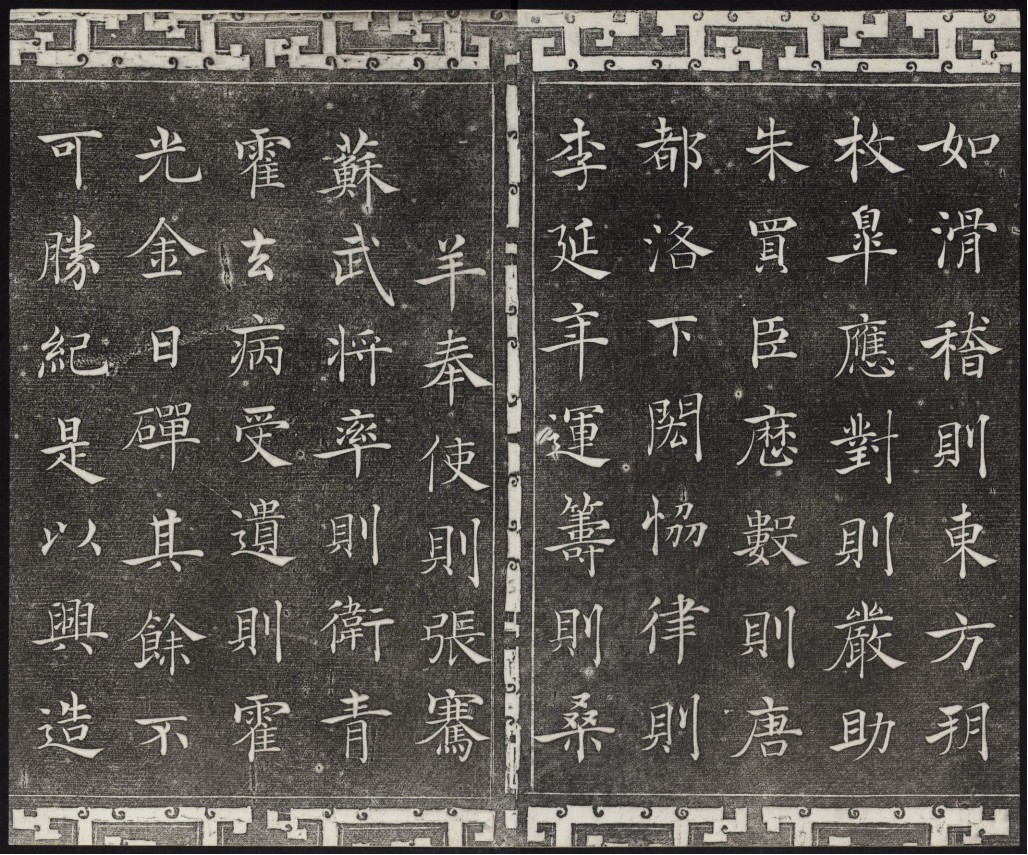 如滑稽則東方朔
枚皐應對則嚴助
朱買臣厯數則唐
都洛下閎恊律則
李延年運籌則桑
羊奉使則張騫
蘇武將率則衛青
霍去病受遺則霍
光金日磾其餘不
可勝紀是以興造